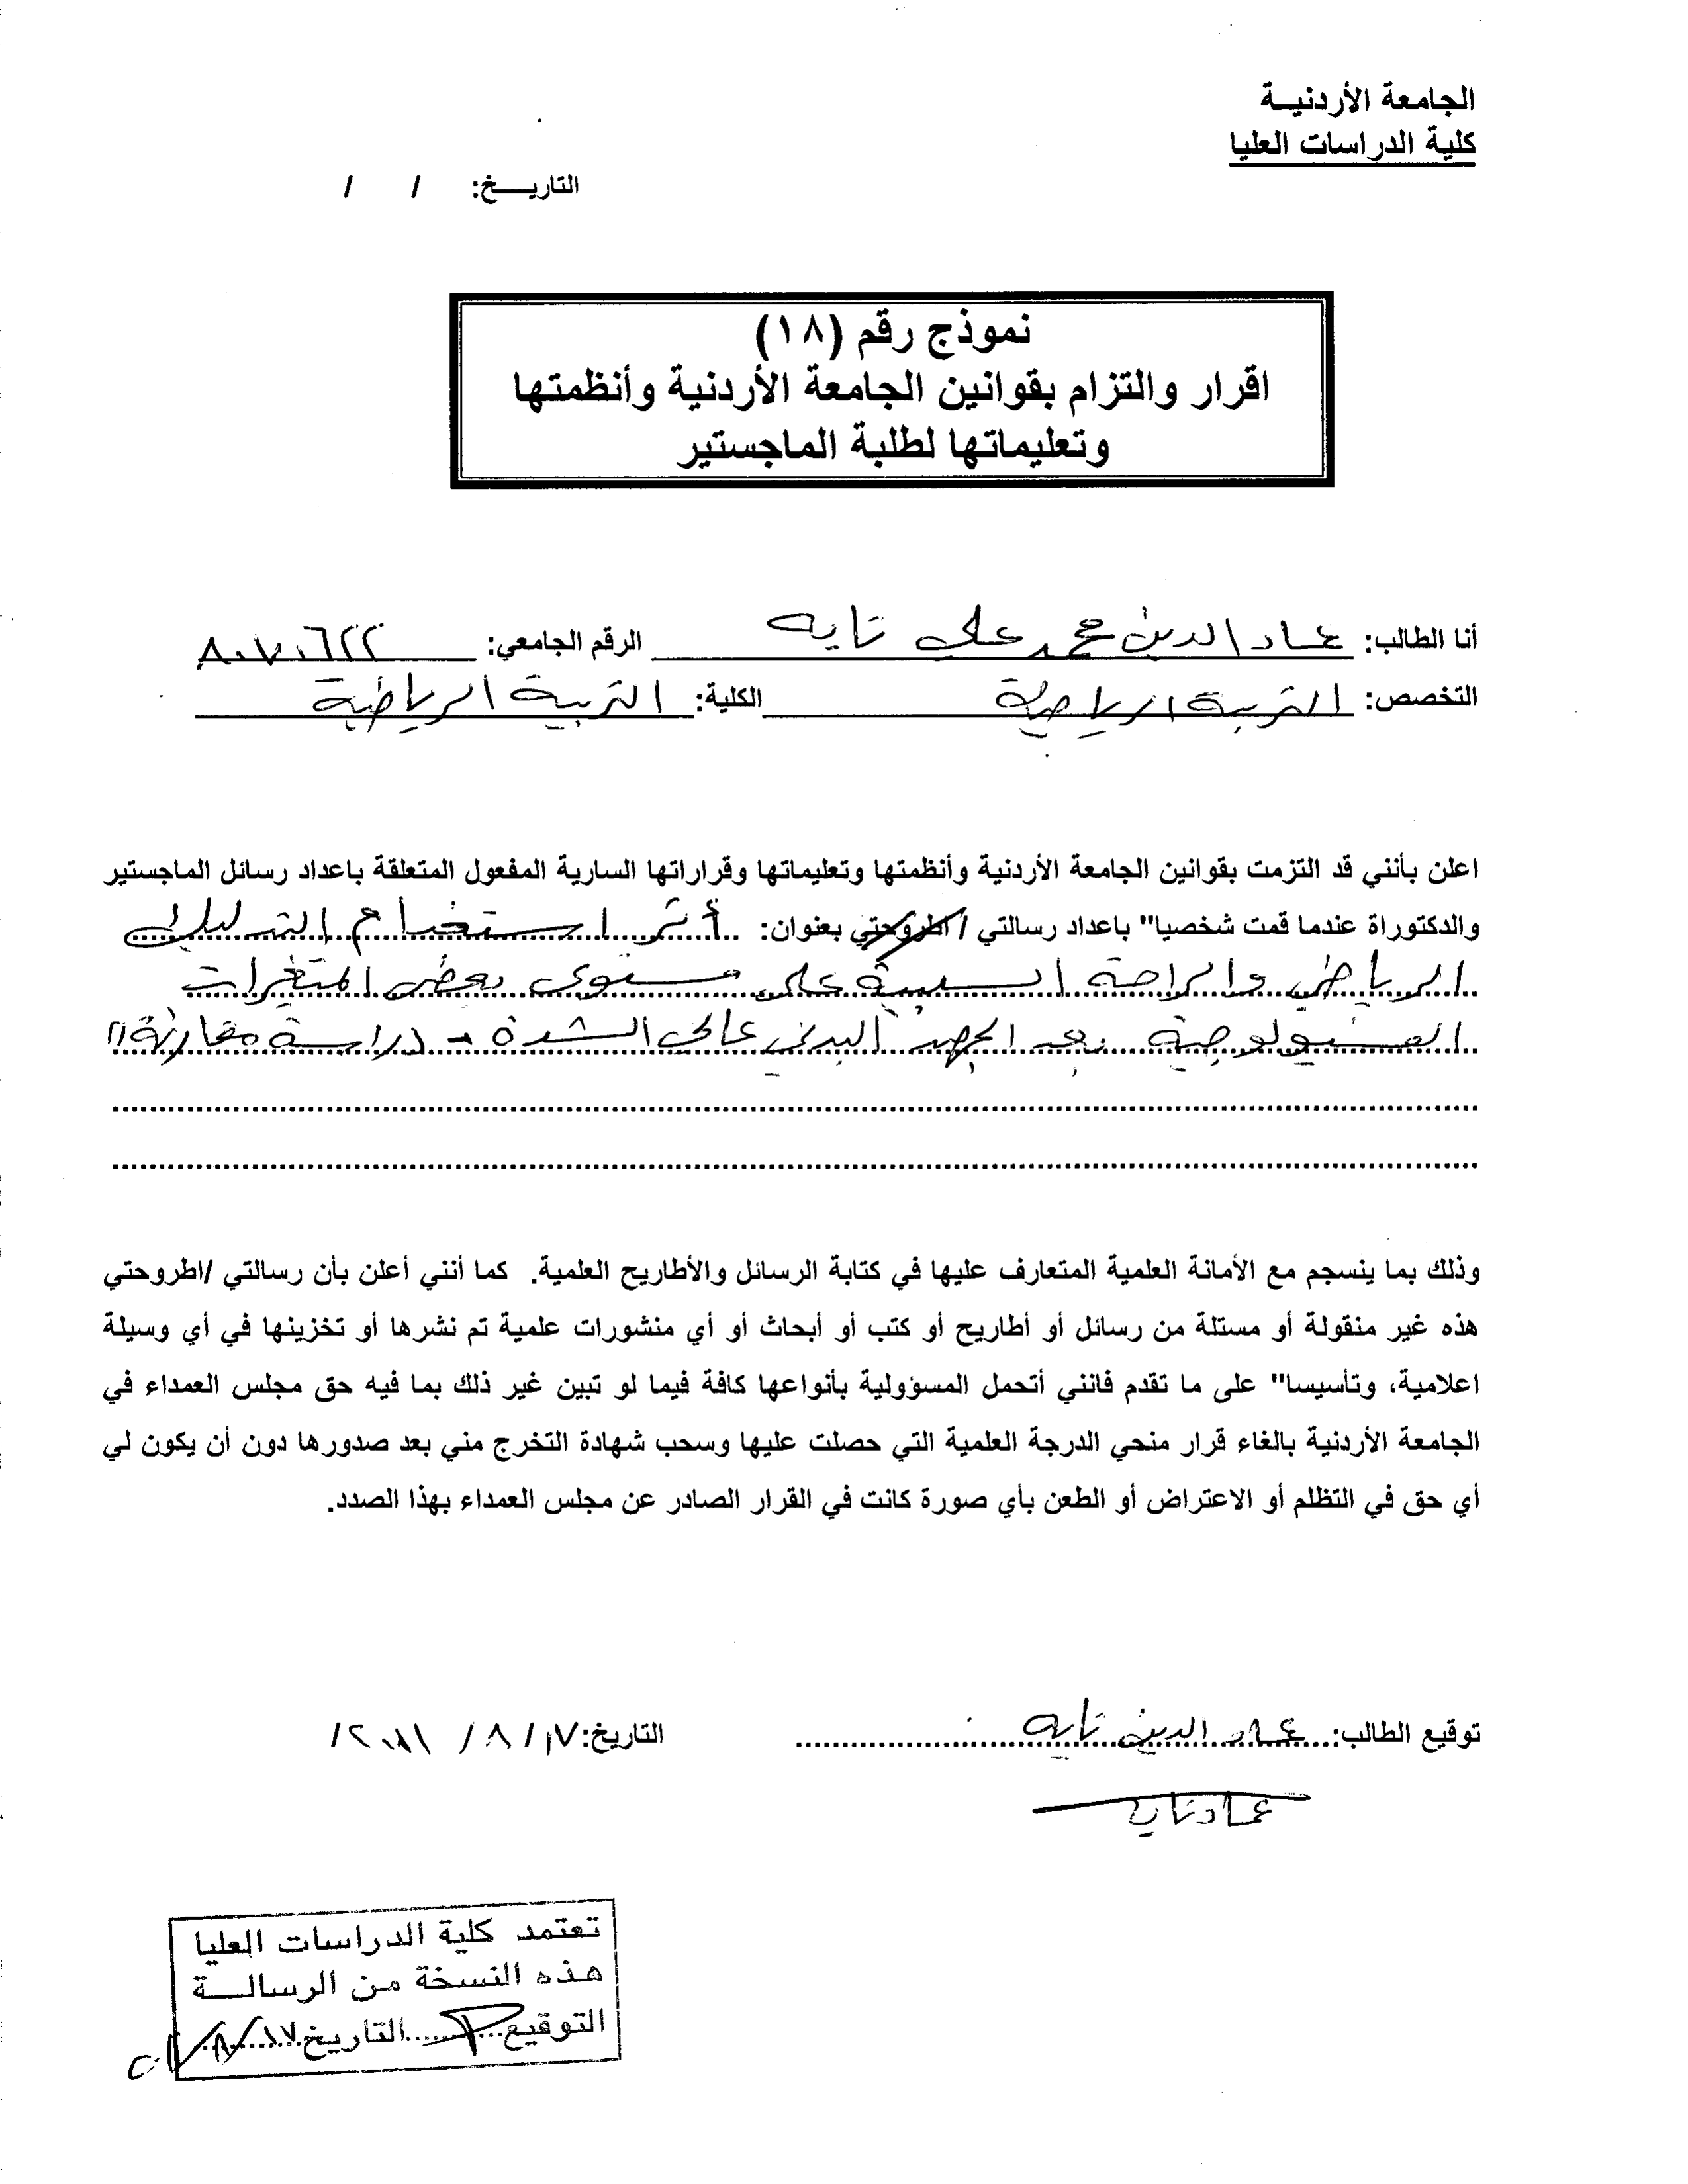 الجامعة الأردنيــة
كلية الدراسات العليا
التاريــخ: / /
نموذج رقم (١٨)
اقرار والتزام بقوانين الجامعة الأردنية وأنظمتها
وتعليماتها لطلبة الماجستير
أنا الطالب: عماد الدين محمد علي تايه الرقم الجامعي: ٨٠٧٠٦٢٢
التخصص: التربية الرياضية الكلية: التربية الرياضية
اعلن بأنني قد التزمت بقوانين الجامعة الأردنية وأنظمتها وتعليماتها وقراراتها السارية المفعول المتعلقة باعداد رسائل الماجستير
والدكتوراة عندما قمت شخصيا" باعداد رسالتي /اطروحتي بعنوان: أثر استخدام التدليك
الرياضي والراحة السلبية على مستوى بعض المتغيرات
الفسيولوجية بعد الجهد البدني عالي الشدة - دراسة مقارنة"
وذلك بما ينسجم مع الأمانة العلمية المتعارف عليها في كتابة الرسائل والأطاريح العلمية. كما أنني أعلن بأن رسالتي /اطروحتي
هذه غير منقولة أو مستلة من رسائل أو أطاريح أو كتب أو أبحاث أو أي منشورات علمية تم نشرها أو تخزينها في أي وسيلة
اعلامية، وتأسيسا" على ما تقدم فانني أتحمل المسؤولية بأنواعها كافة فيما لو تبين غير ذلك بما فيه حق مجلس العمداء في
الجامعة الأردنية بالغاء قرار منحي الدرجة العلمية التي حصلت عليها وسحب شهادة التخرج مني بعد صدورها دون أن يكون لي
أي حق في التظلم أو الاعتراض أو الطعن بأي صورة كانت في القرار الصادر عن مجلس العمداء بهذا الصدد.
توقيع الطالب: عماد الدين تايه التاريخ: ١٧ / ٨ / ٢٠١١/
عماد تايه
تعتمد كلية الدراسات العليا
هذه النسخة من الرسالــة
التوقيع التاريخ ١٧/٨/